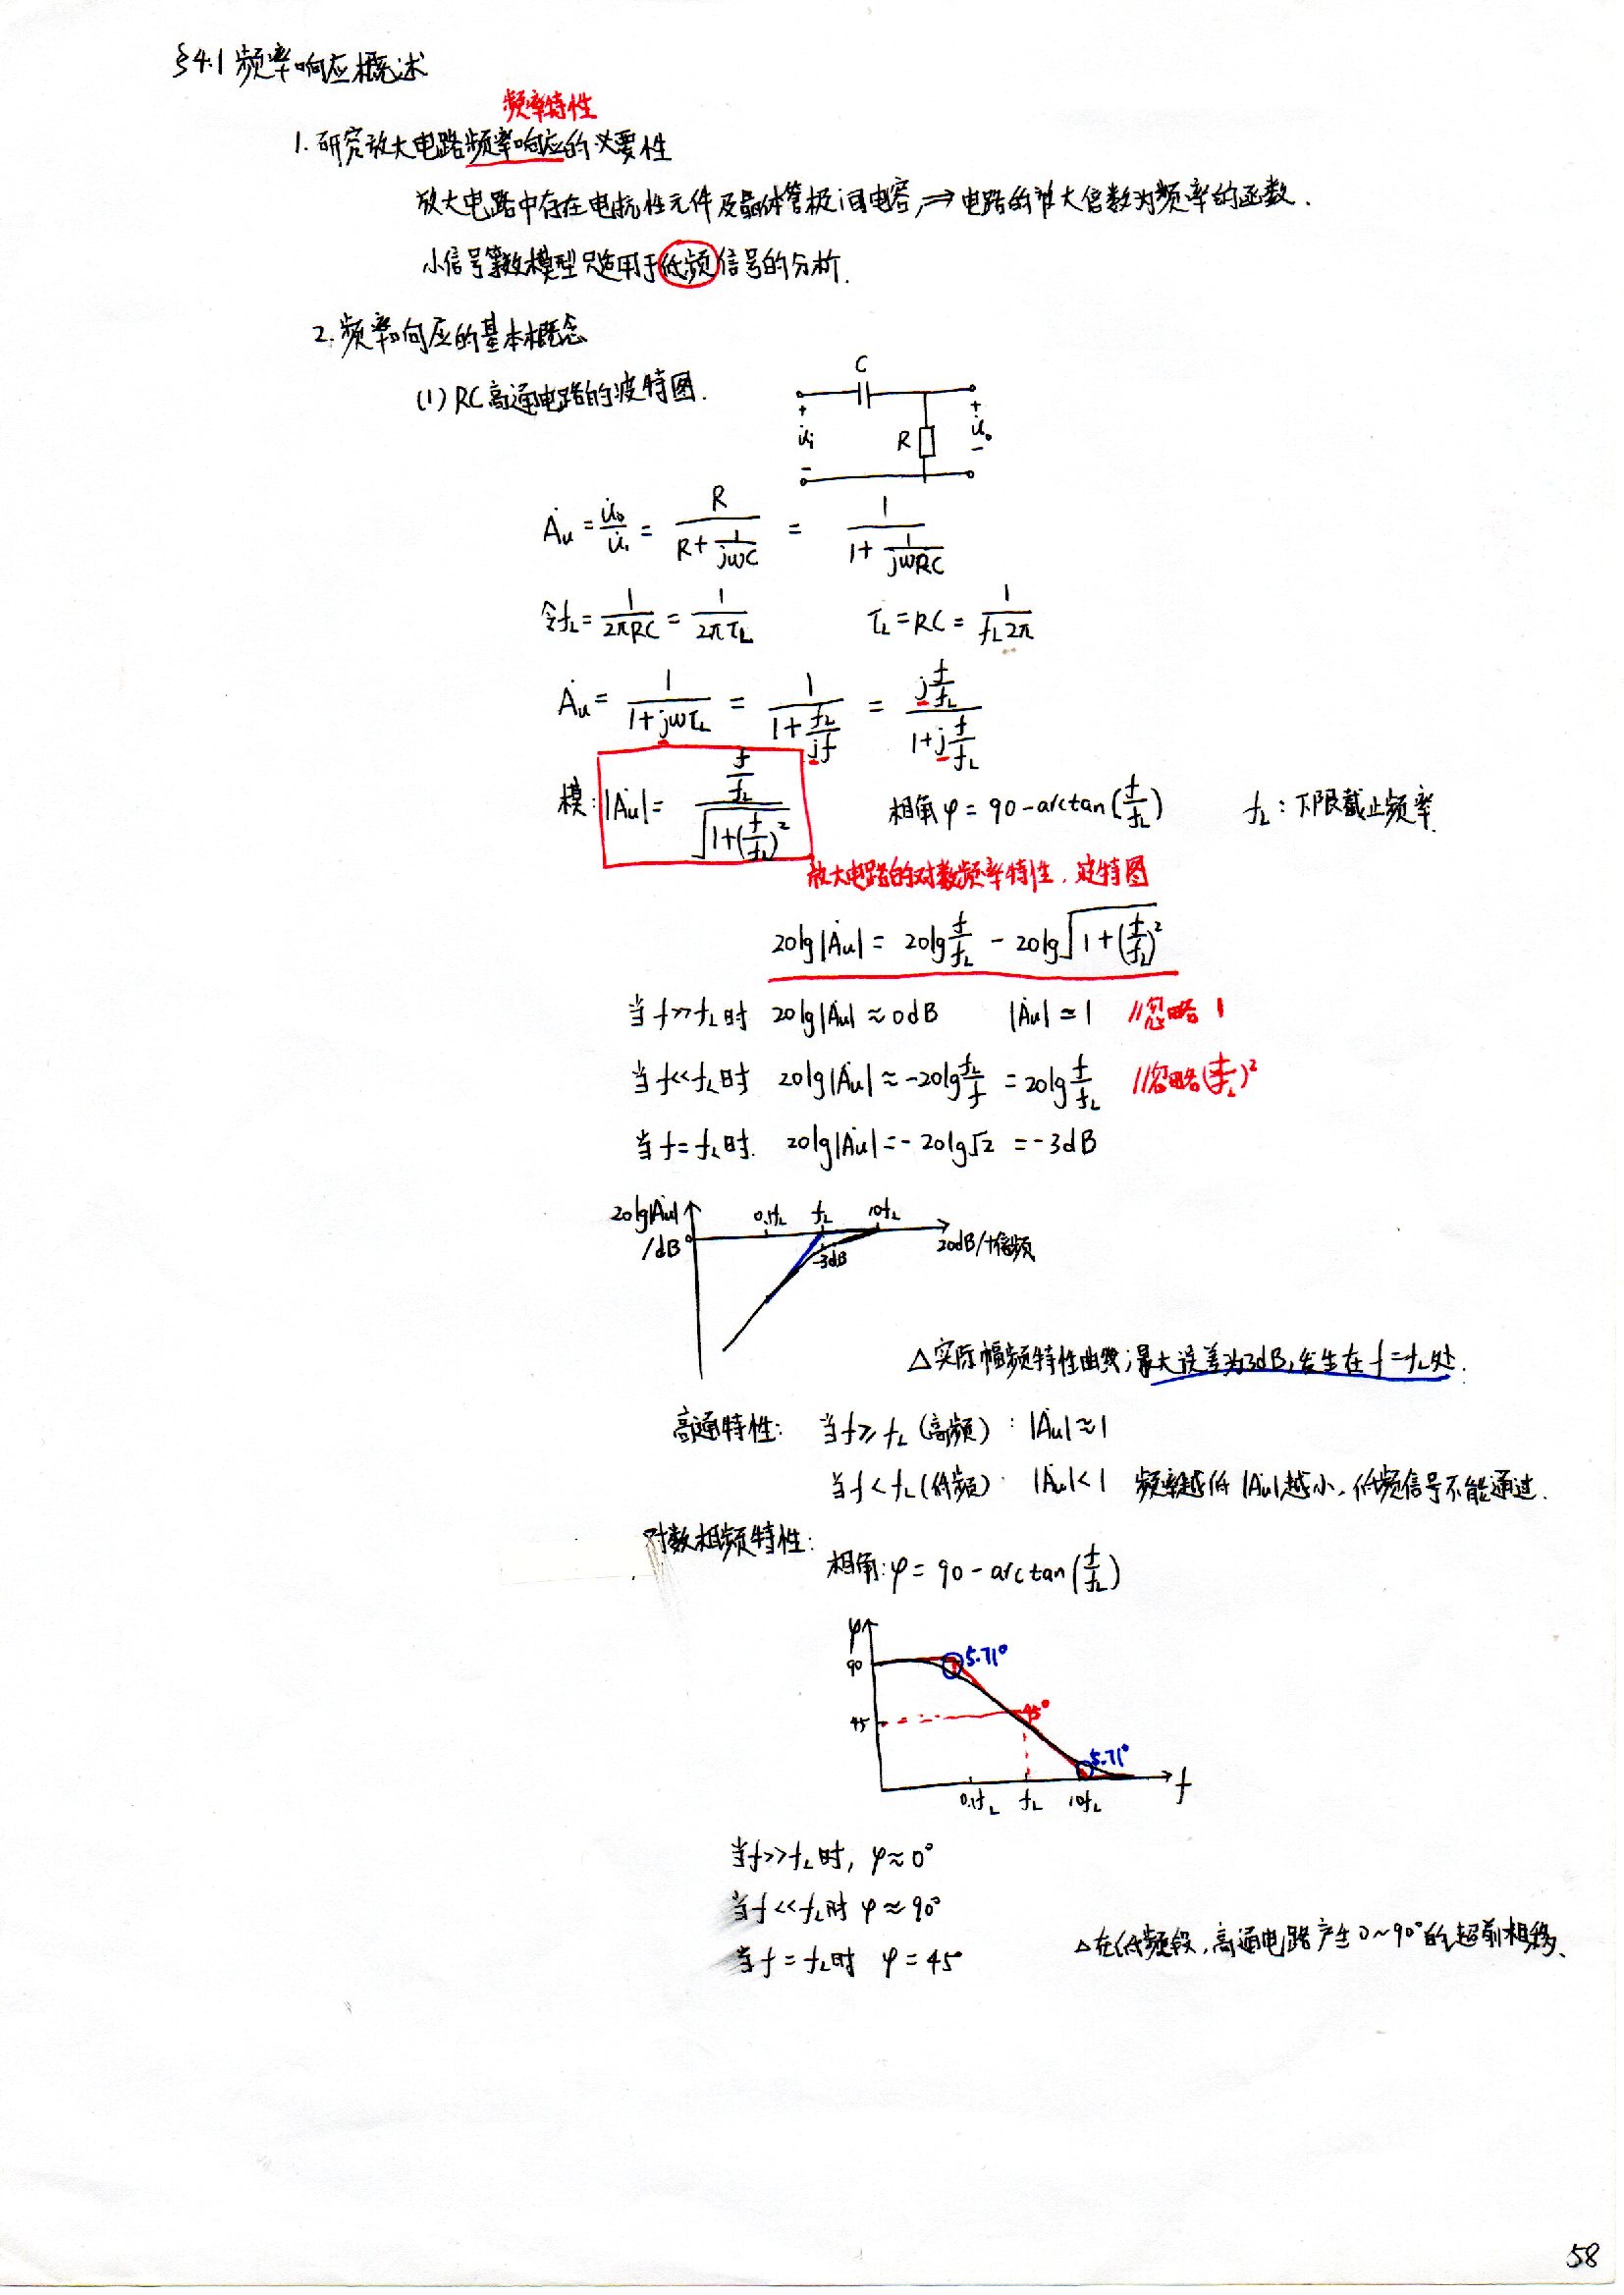 §4.1 频率响应概述
频率特性
1. 研究放大电路频率响应的必要性
放大电路中存在电抗性元件及晶体管极间电容, ⇒ 电路的放大倍数为频率的函数.
小信号等效模型只适用于低频信号的分析.
2. 频率响应的基本概念
(1) RC高通电路的波特图.
C
+ U̇i -
R
+ U̇o -
Ȧu = U̇o/U̇i = R/(R+1/(jωC)) = 1/(1+1/(jωRC))
令fL = 1/(2πRC) = 1/(2πτL)  τL = RC = 1/(fL2π)
Ȧu = 1/(1+jωτL) = 1/(1+fL/(jf)) = (j f/fL)/(1+j f/fL)
模: |Ȧu| = (f/fL)/√(1+(f/fL)²)  相角 φ = 90 - arctan(f/fL)  fL: 下限截止频率.
放大电路的对数频率特性. 波特图
20lg|Ȧu| = 20lg f/fL - 20lg√(1+(f/fL)²)
当 f>>fL时 20lg|Ȧu| ≈ 0dB |Ȧu| ≃ 1 //忽略 1
当 f<<fL时 20lg|Ȧu| ≈ -20lg fL/f = 20lg f/fL //忽略(f/fL)²
当 f=fL时. 20lg|Ȧu| = -20lg√2 = -3dB
20lg|Ȧu| /dB
0
0.1fL fL 10fL
-3dB
20dB/十倍频
△实际幅频特性曲线; 最大误差为3dB, 发生在 f=fL处.
高通特性: 当 f≥fL (高频): |Ȧu|≈1
当 f<fL (低频): |Ȧu|<1 频率越低 |Ȧu|越小, 低频信号不能通过.
对数相频特性:
相角: φ = 90 - arctan(f/fL)
φ
90
5.71°
45
45°
5.71°
0.1fL fL 10fL f
当f>>fL时, φ≈0°
当f<<fL时 φ≈90°
当f=fL时 φ=45°
△在低频段, 高通电路产生0~90°的超前相移.
58